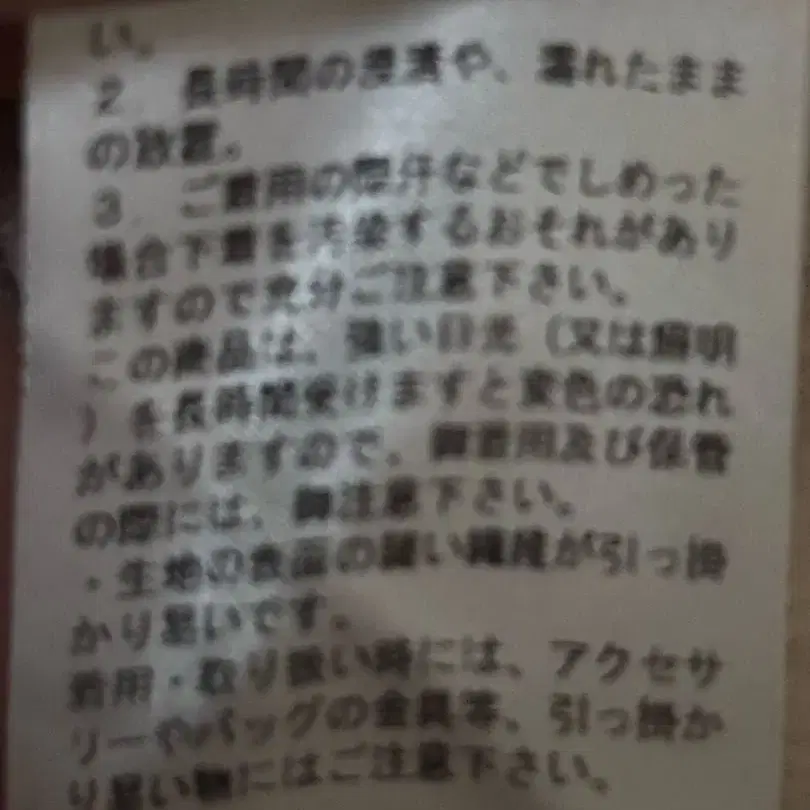 い。
2 長時間の浸漬や、濡れたまま
の放置。
3 ご着用の際汗などでしめった
場合下着を汚染するおそれがあり
ますので充分ご注意下さい。
この商品は、強い日光(又は照明
)を長時間受けますと変色の恐れ
がありますので、御着用及び保管
の際には、御注意下さい。
・生地の表面の 繊維が引っ掛
かり易いです。
着用・取り扱い時には、アクセサ
リーやバッグの金具等、引っ掛か
り易い物にはご注意下さい。